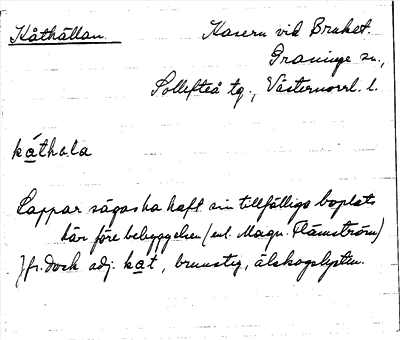 Kåthällan.
Kasern vid Bruket.
Graninge sn.,
Sollefteå tg., Västernorrl. l.
kåthala
Lappar sägas ha haft sin tillfälliga boplats
här före bebyggelsen (enl. Magn. Flämström)
Jfr. dock adj. kat, brunstig, älskogslysten.